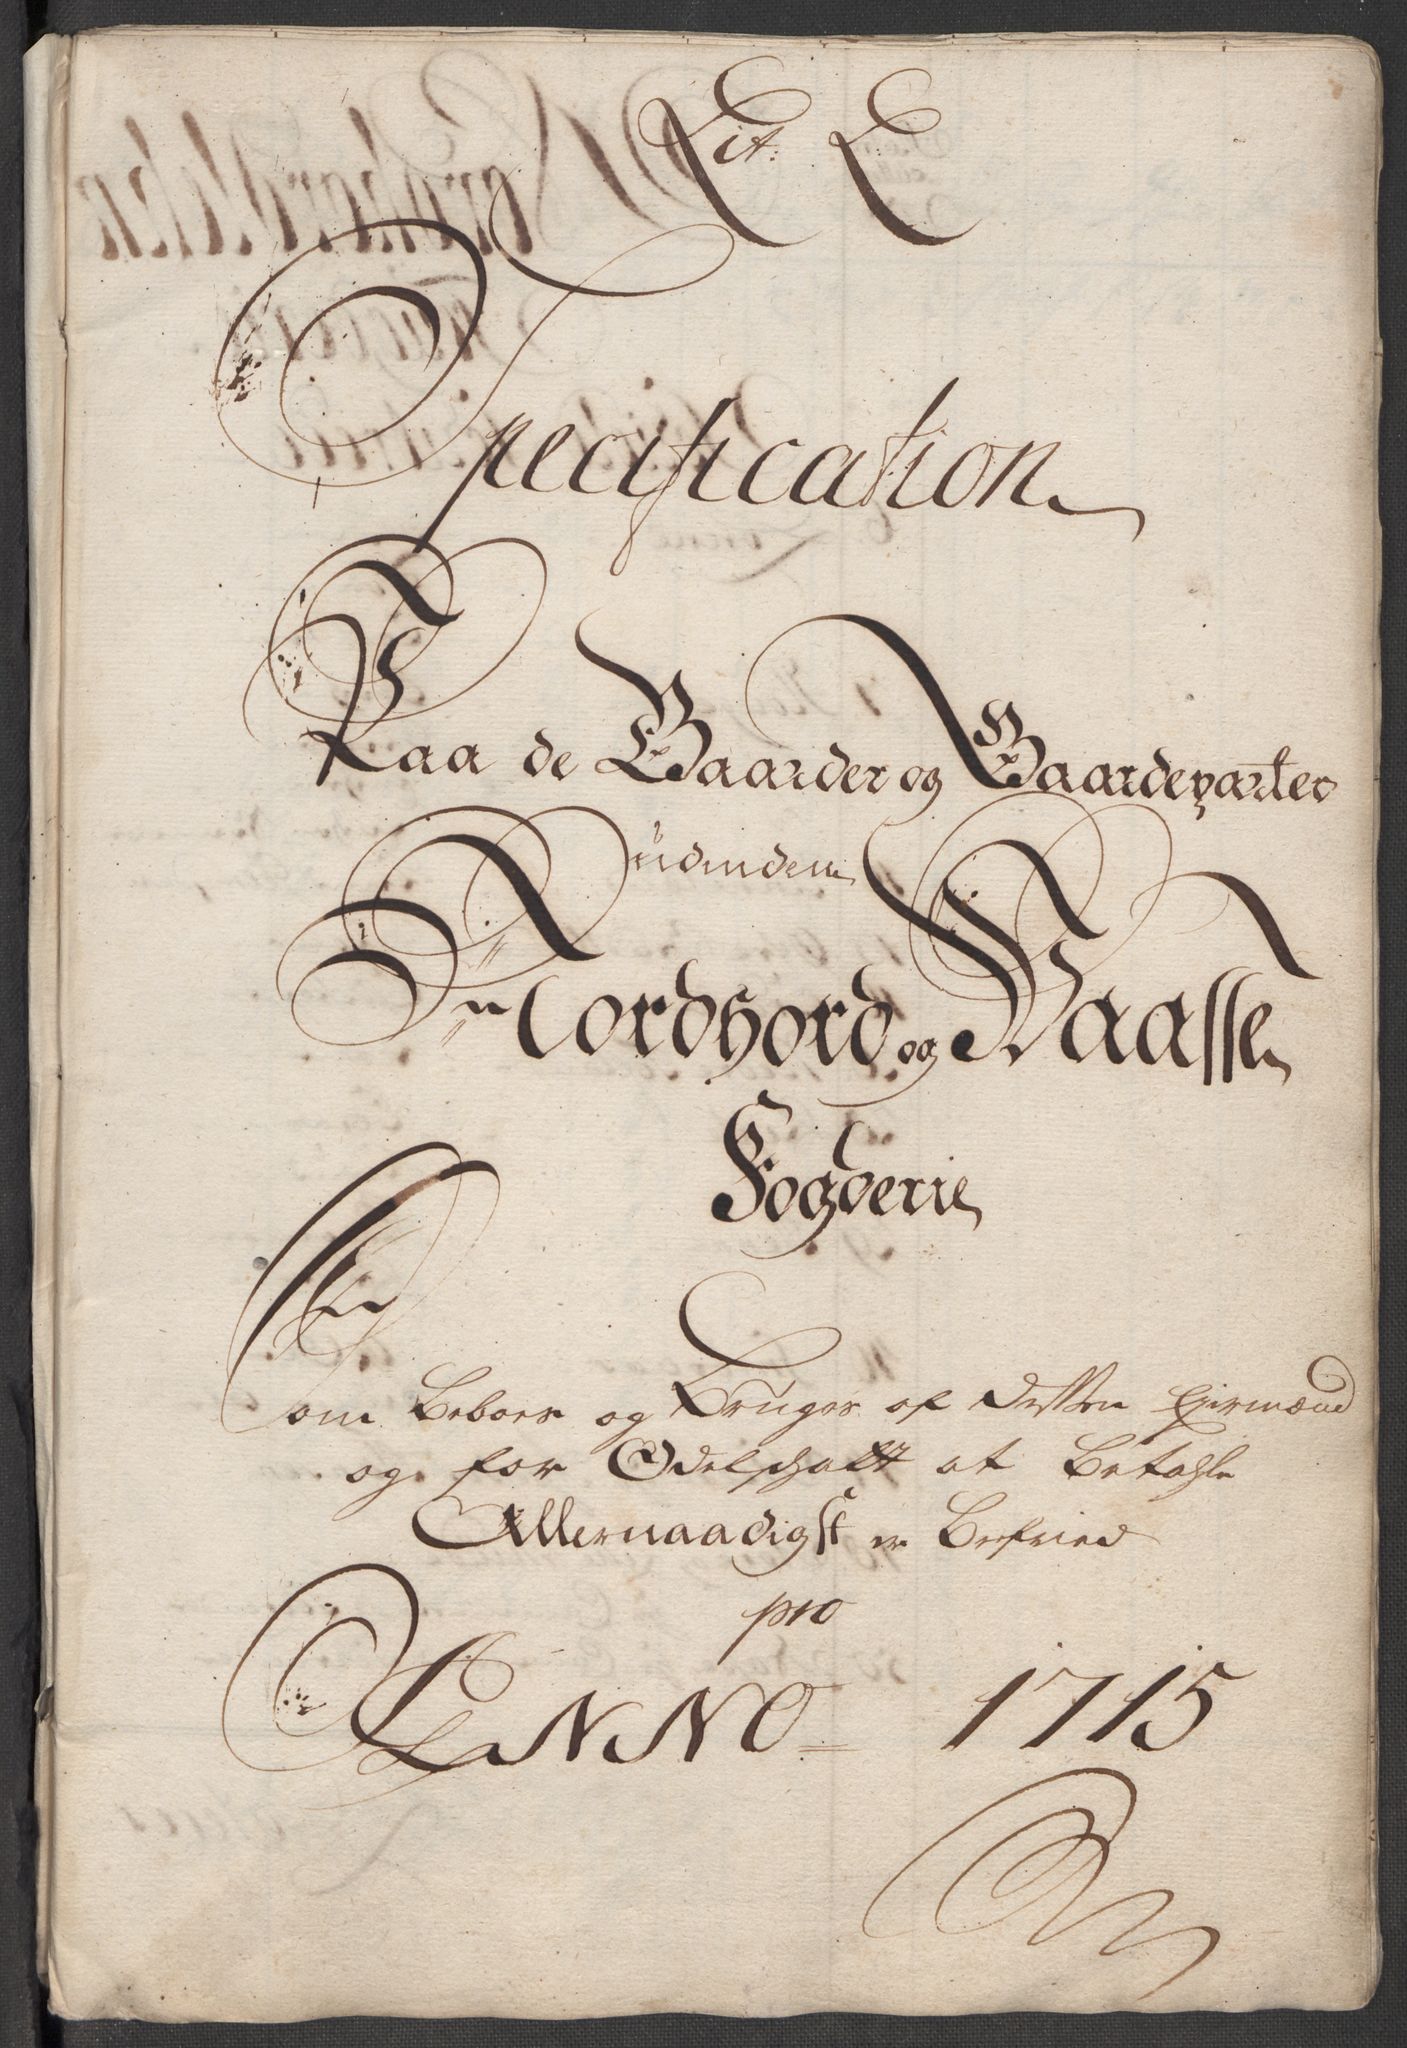 Lit: E
Specification
Paa de Gaarder og Gaardeparter
udinden
Nordhord og Waasse
Fogderie
Som Beboes og Bruges af dessen Ejermænd
og for Odelschatt at Betahle
Allernaadigst er Befried
pro
ANNO 1715